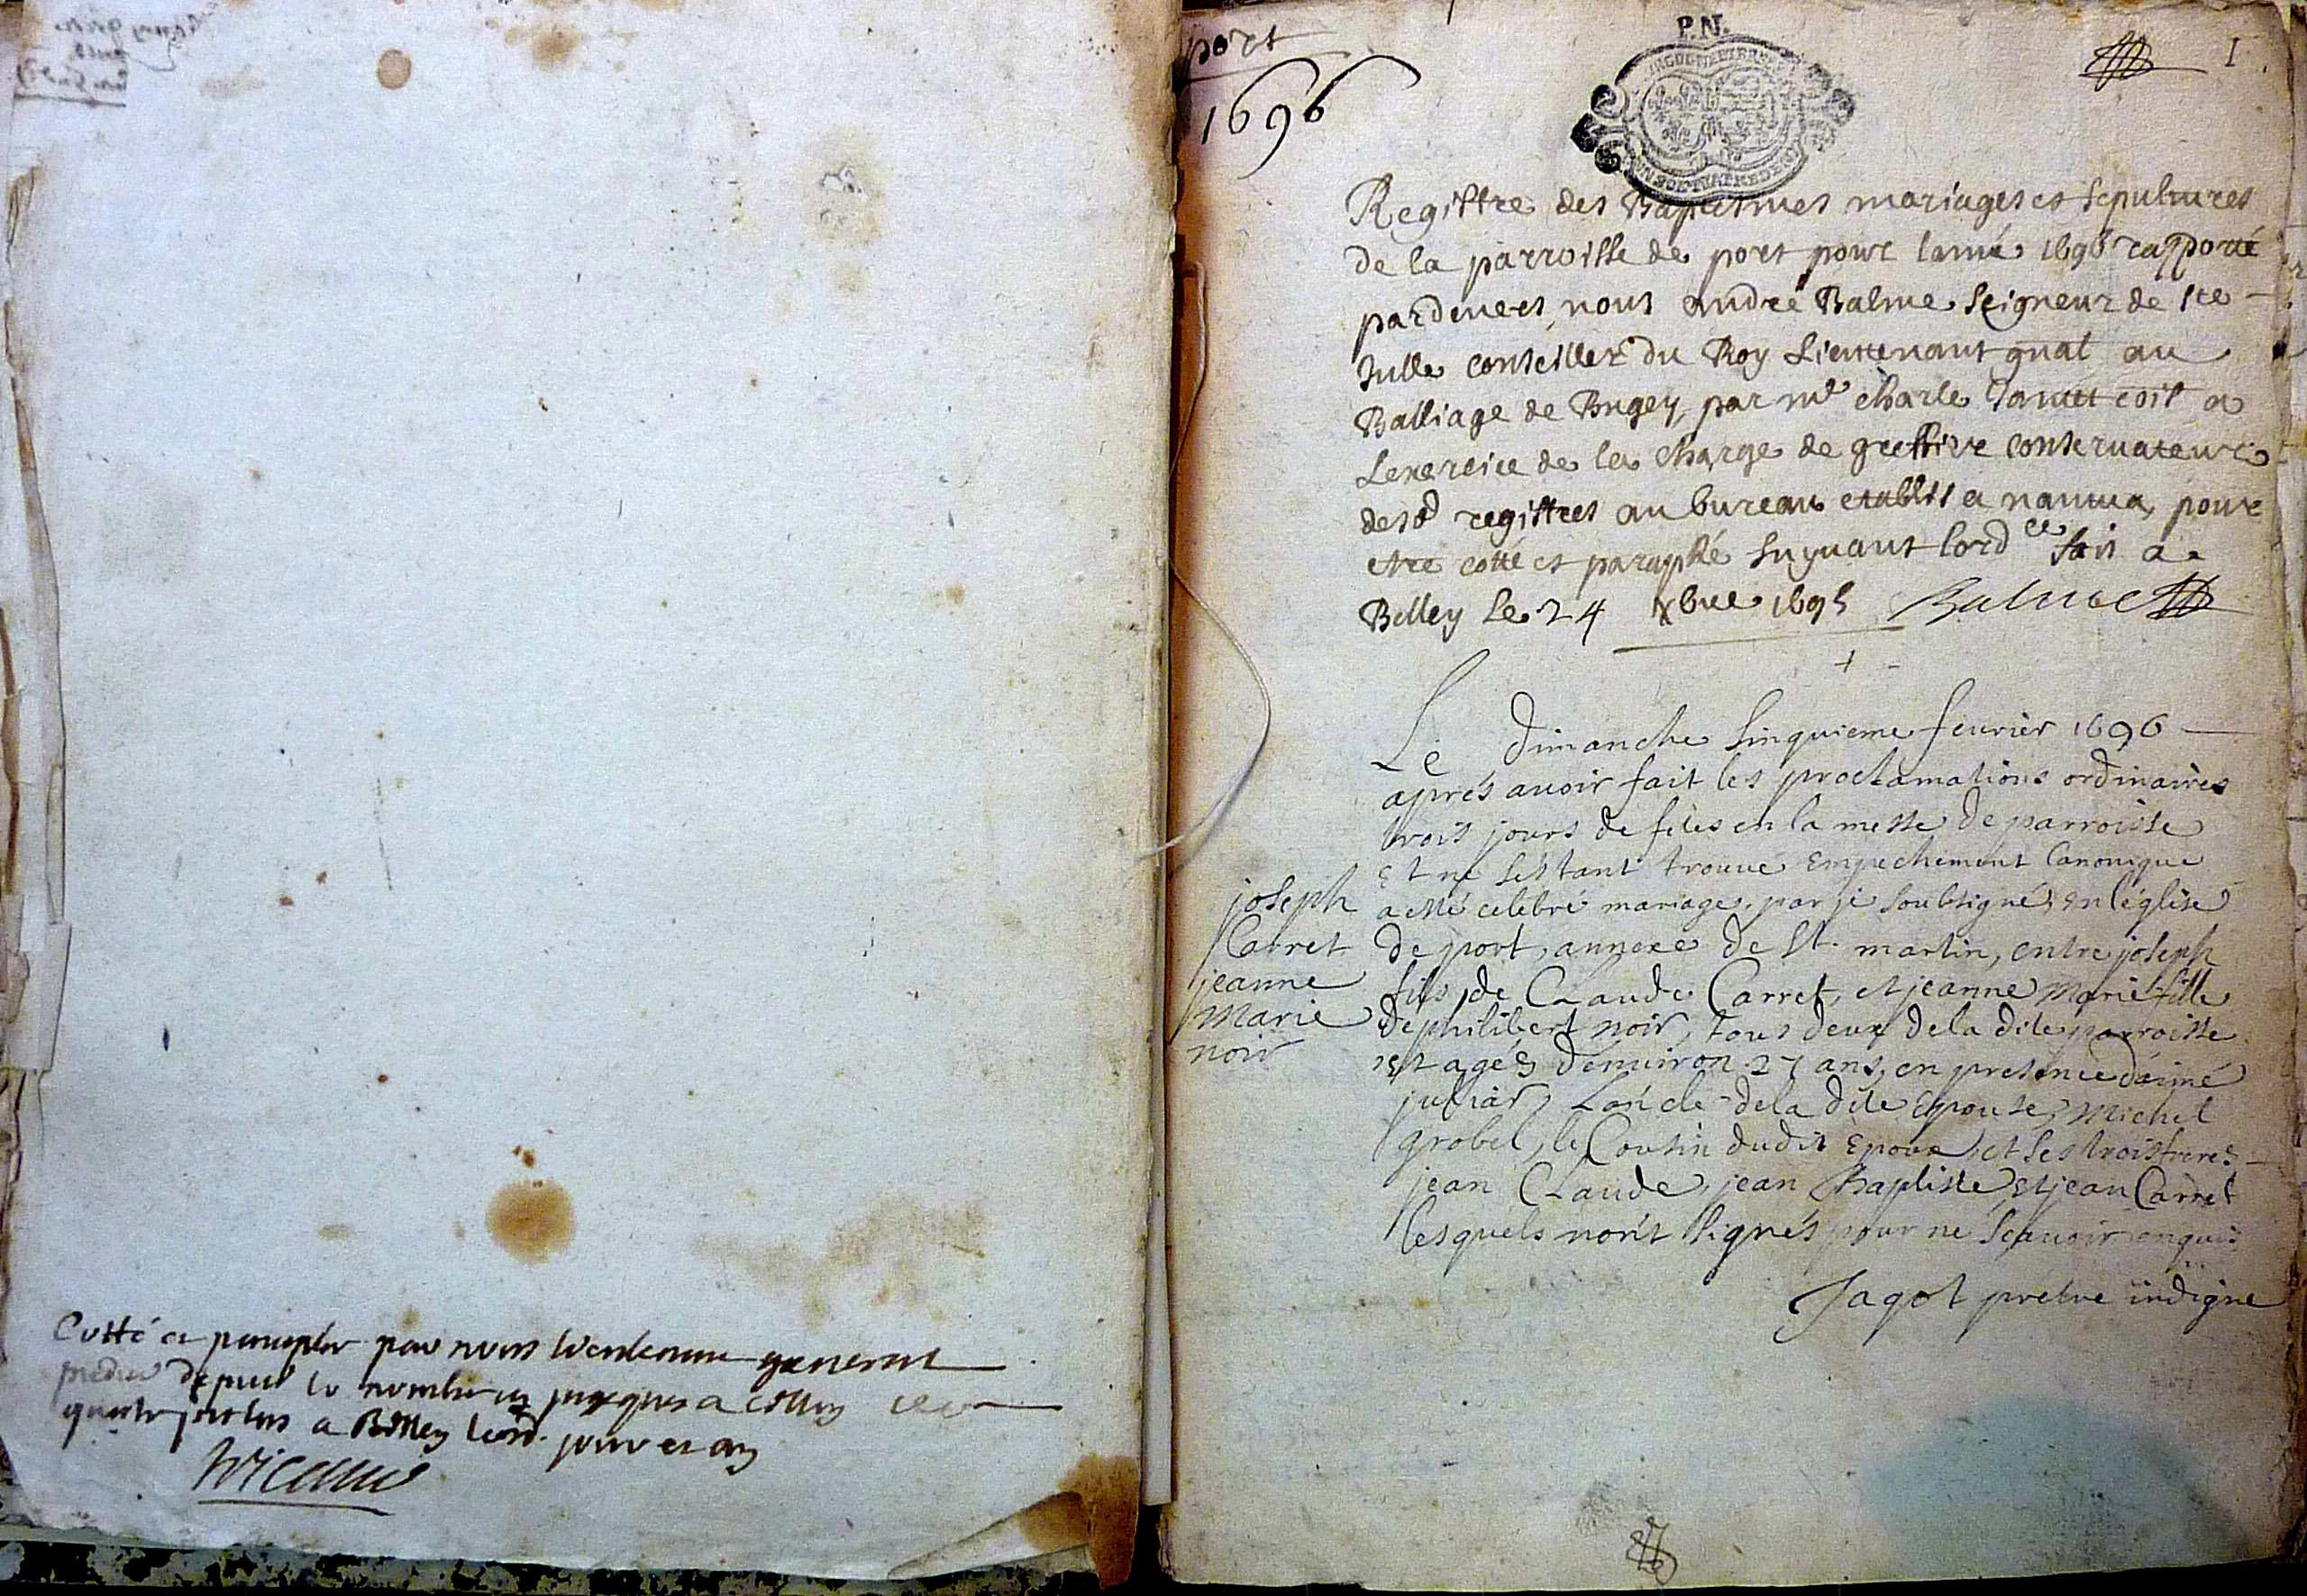 Cotté et paraphé par nous lieutenant general
depuis le nombre un jusques a celluy
quatre a Belley lesd. jour et an
port
1696
P.N.
I
Registre des Baptesmes mariages et sepultures
de la parroisse de port pour lanné 1696 rapporté
pardevers nous andré Balme Seigneur de ste
Julle conseiller du Roy Lieutenant gnal au
Balliage de Bugey, par mr charle coīs a
Lexercice de la charge de greffier conservateur
desd registres au bureau establis a nantua, pour
etre cotté et paraphé suyuant lordce fait a
Belley le 24 Xbre 1695 Balme
Le dimanche Sinquieme feurier 1696
aprés auoir fait les proclamations ordinaires
trois jours de fétes en la messe de parroisse
Et ne sestant trouué Empechement Canonique
a esté celebré mariage, par je soubsigné, en léglise
de port, annexe de St. martin, entre joseph
fils de Claude Carret, et jeanne Marie fille
de philibert noir, tous deux de la dite parroisse
et agés denuiron 27 ans, en presence daimé
Loncle de la dite Epouse, Michel
grobel, le Cousin dudit Epoux, et ses trois freres
jean Claude, jean Baptiste, et jean Carret
lesquels n'ont signés pour ne scauoir enquis
Jagot pretre indigne
joseph
Carret
jeanne
Marie
noir